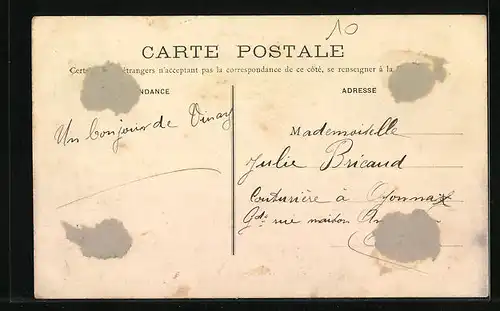 10
CARTE POSTALE
Certains étrangers n'acceptant pas la correspondance de ce côté, se renseigner à la
NDANCE
ADRESSE
Un bonjour de Vinay
Mademoiselle
Julie Bricaud
Couturière à Oyonnax
Gde rue maison